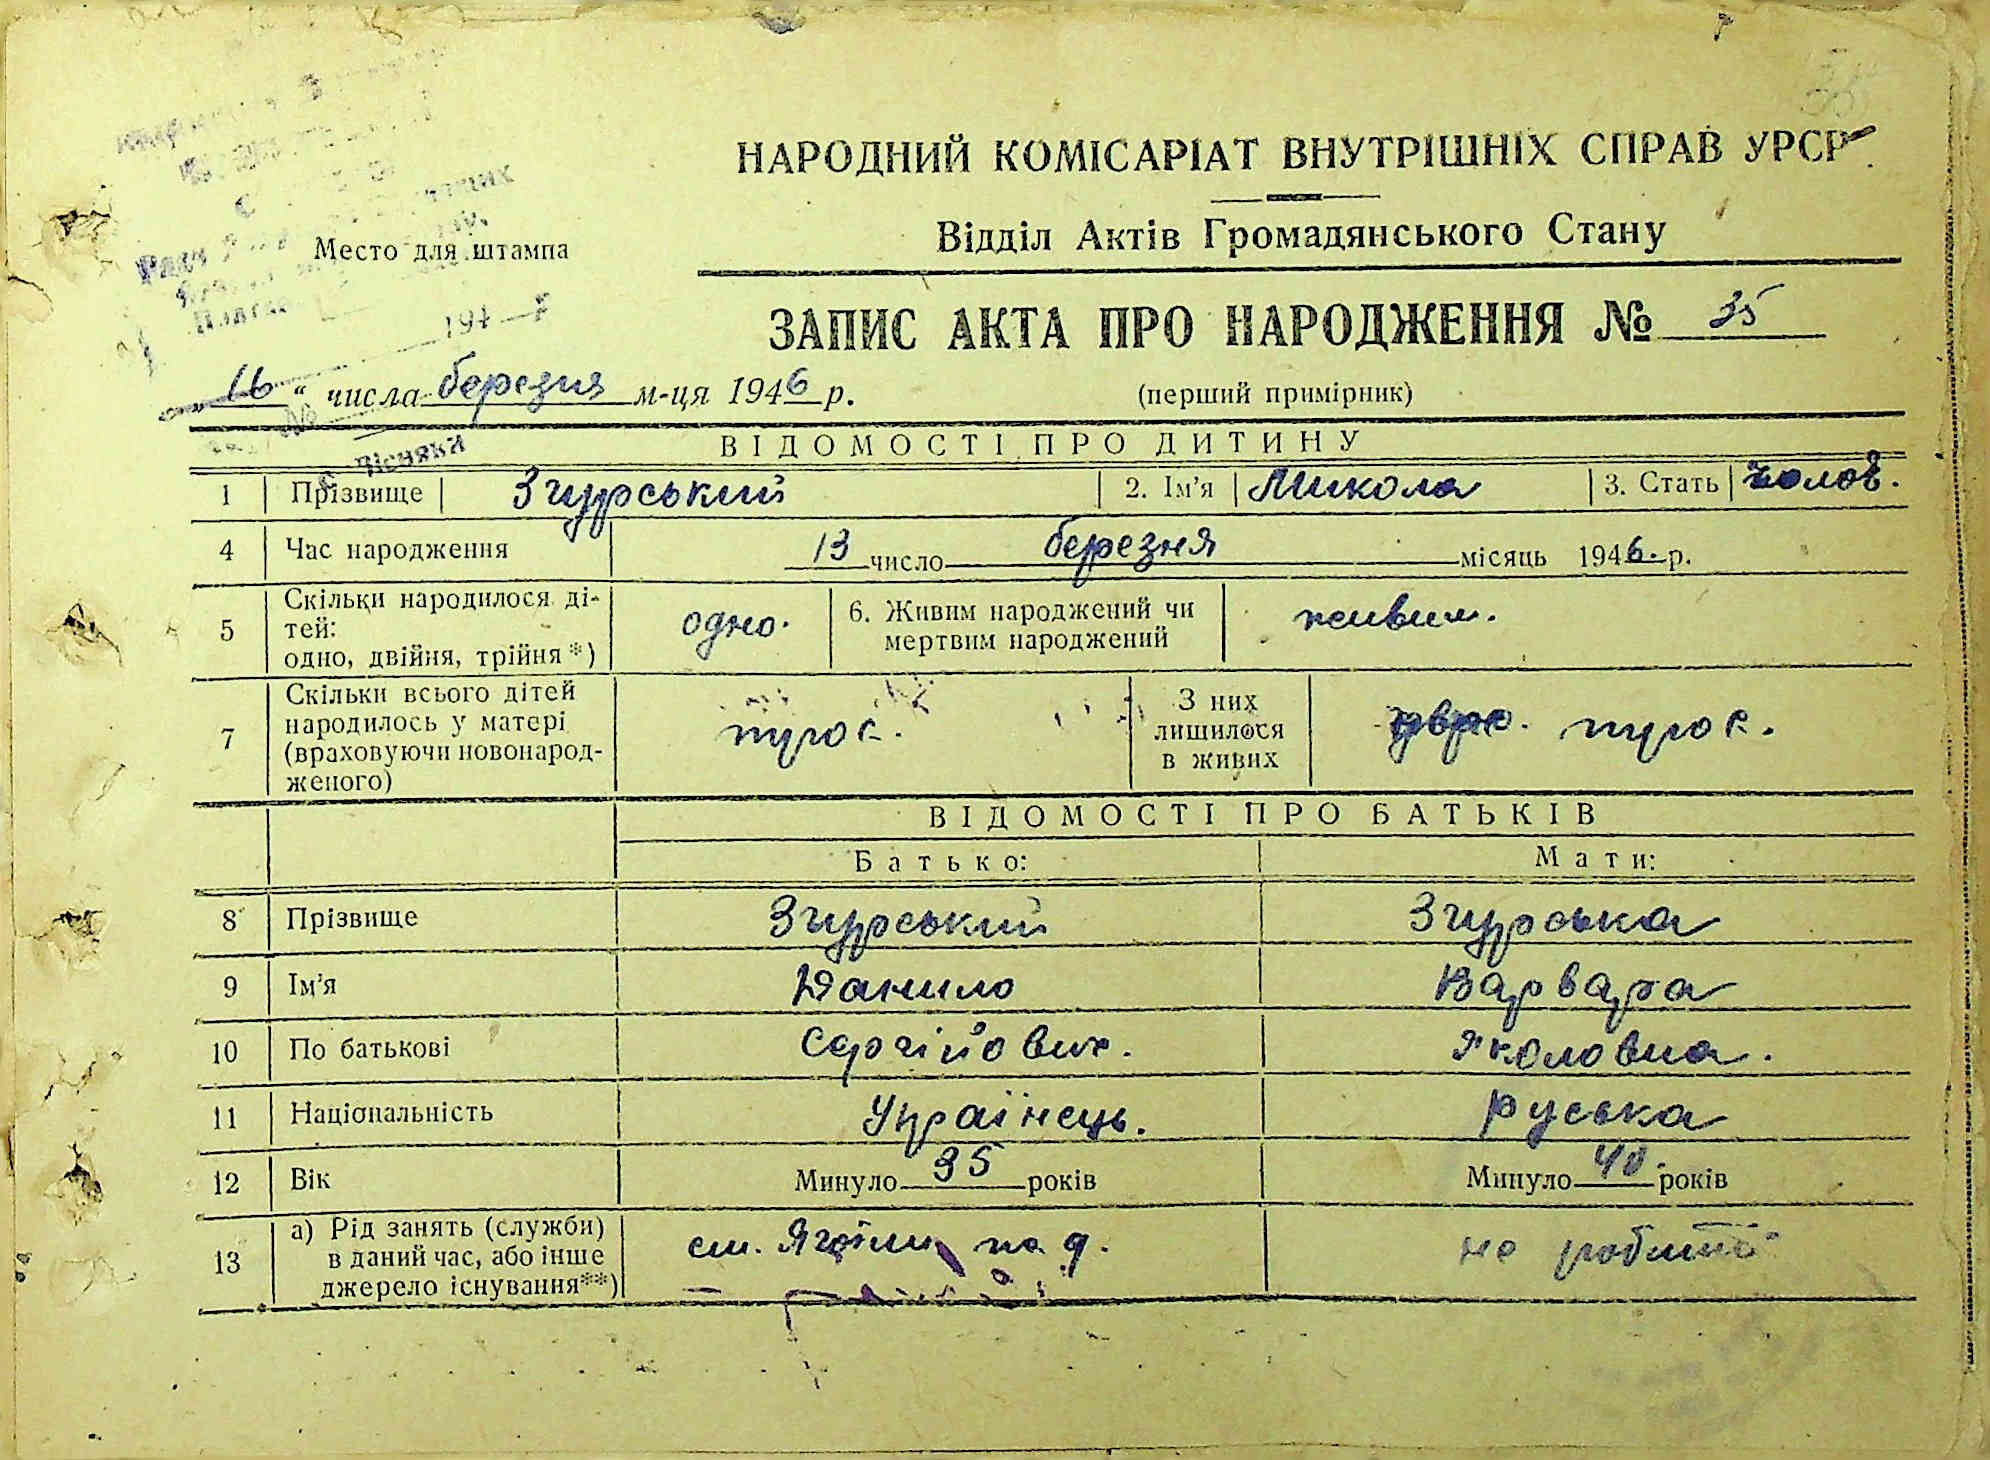 НАРОДНИЙ КОМІСАРІАТ ВНУТРІШНІХ СПРАВ УРСР
Відділ Актів Громадянського Стану
Место для штампа
194
ЗАПИС АКТА ПРО НАРОДЖЕННЯ № 35
„16“ числа березня м-ця 1946 р. (перший примірник)
с. Лісняки
ВІДОМОСТІ ПРО ДИТИНУ
1 Прізвище Згурський 2. Ім'я Микола 3. Стать чолов.
4 Час народження 13 число березня місяць 1946. р.
5 Скільки народилося ді-
тей:
одно, двійня, трійня*) одно. 6. Живим народжений чи
мертвим народжений живим.
7 Скільки всього дітей
народилось у матері
(враховуючи новонарод-
женого) З них
лишилося
в живих
ВІДОМОСТІ ПРО БАТЬКІВ
Батько: Мати:
8 Прізвище Згурський Згурська
9 Ім'я Данило Варвара
10 По батькові Сергійович. Яколовна.
11 Національність Українець. руська
12 Вік Минуло 35 років Минуло 40 років
13 а) Рід занять (служби)
в даний час, або інше
джерело існування**) ст. Яготин не робить